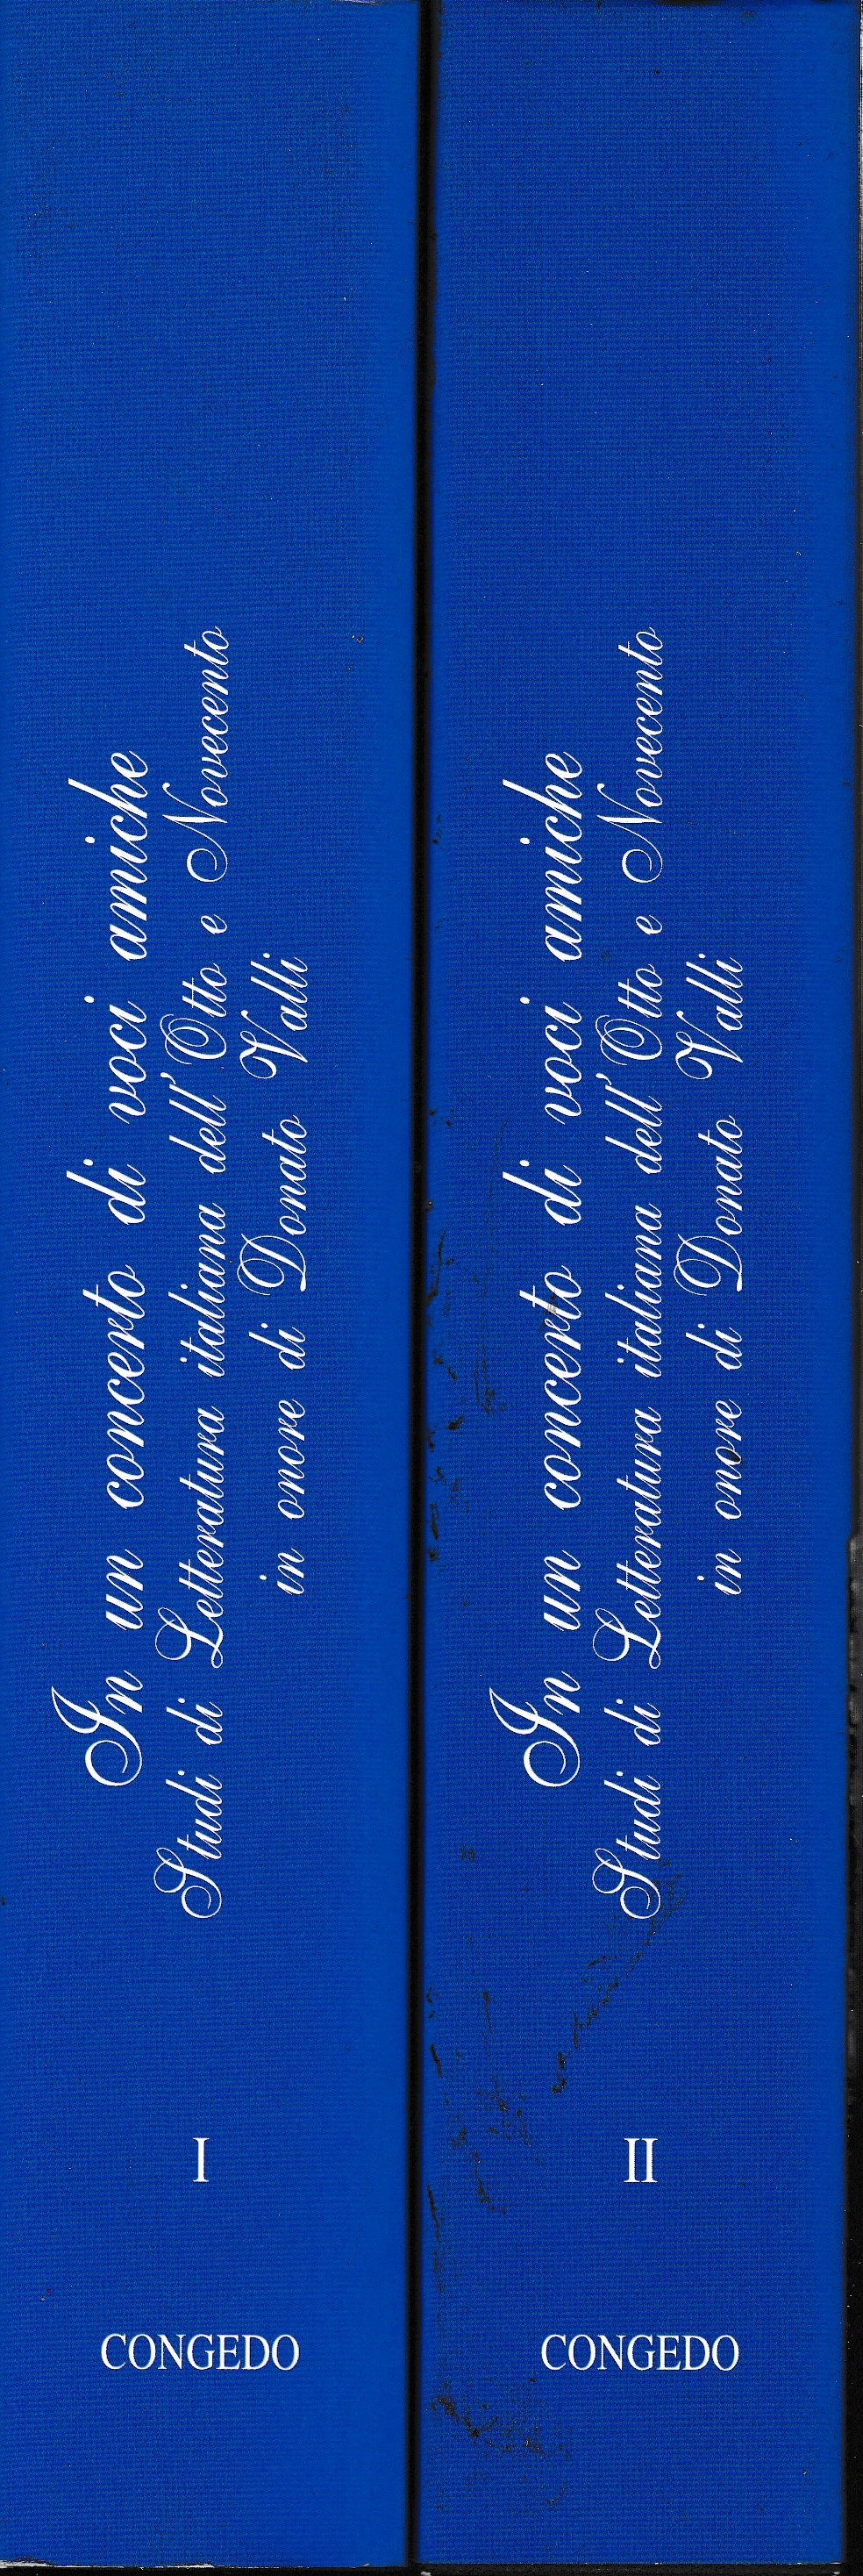 In un concerto di voci amiche
Studi di Letteratura italiana dell'Otto e Novecento
in onore di Donato Valli
I
CONGEDO
In un concerto di voci amiche
Studi di Letteratura italiana dell'Otto e Novecento
in onore di Donato Valli
II
CONGEDO